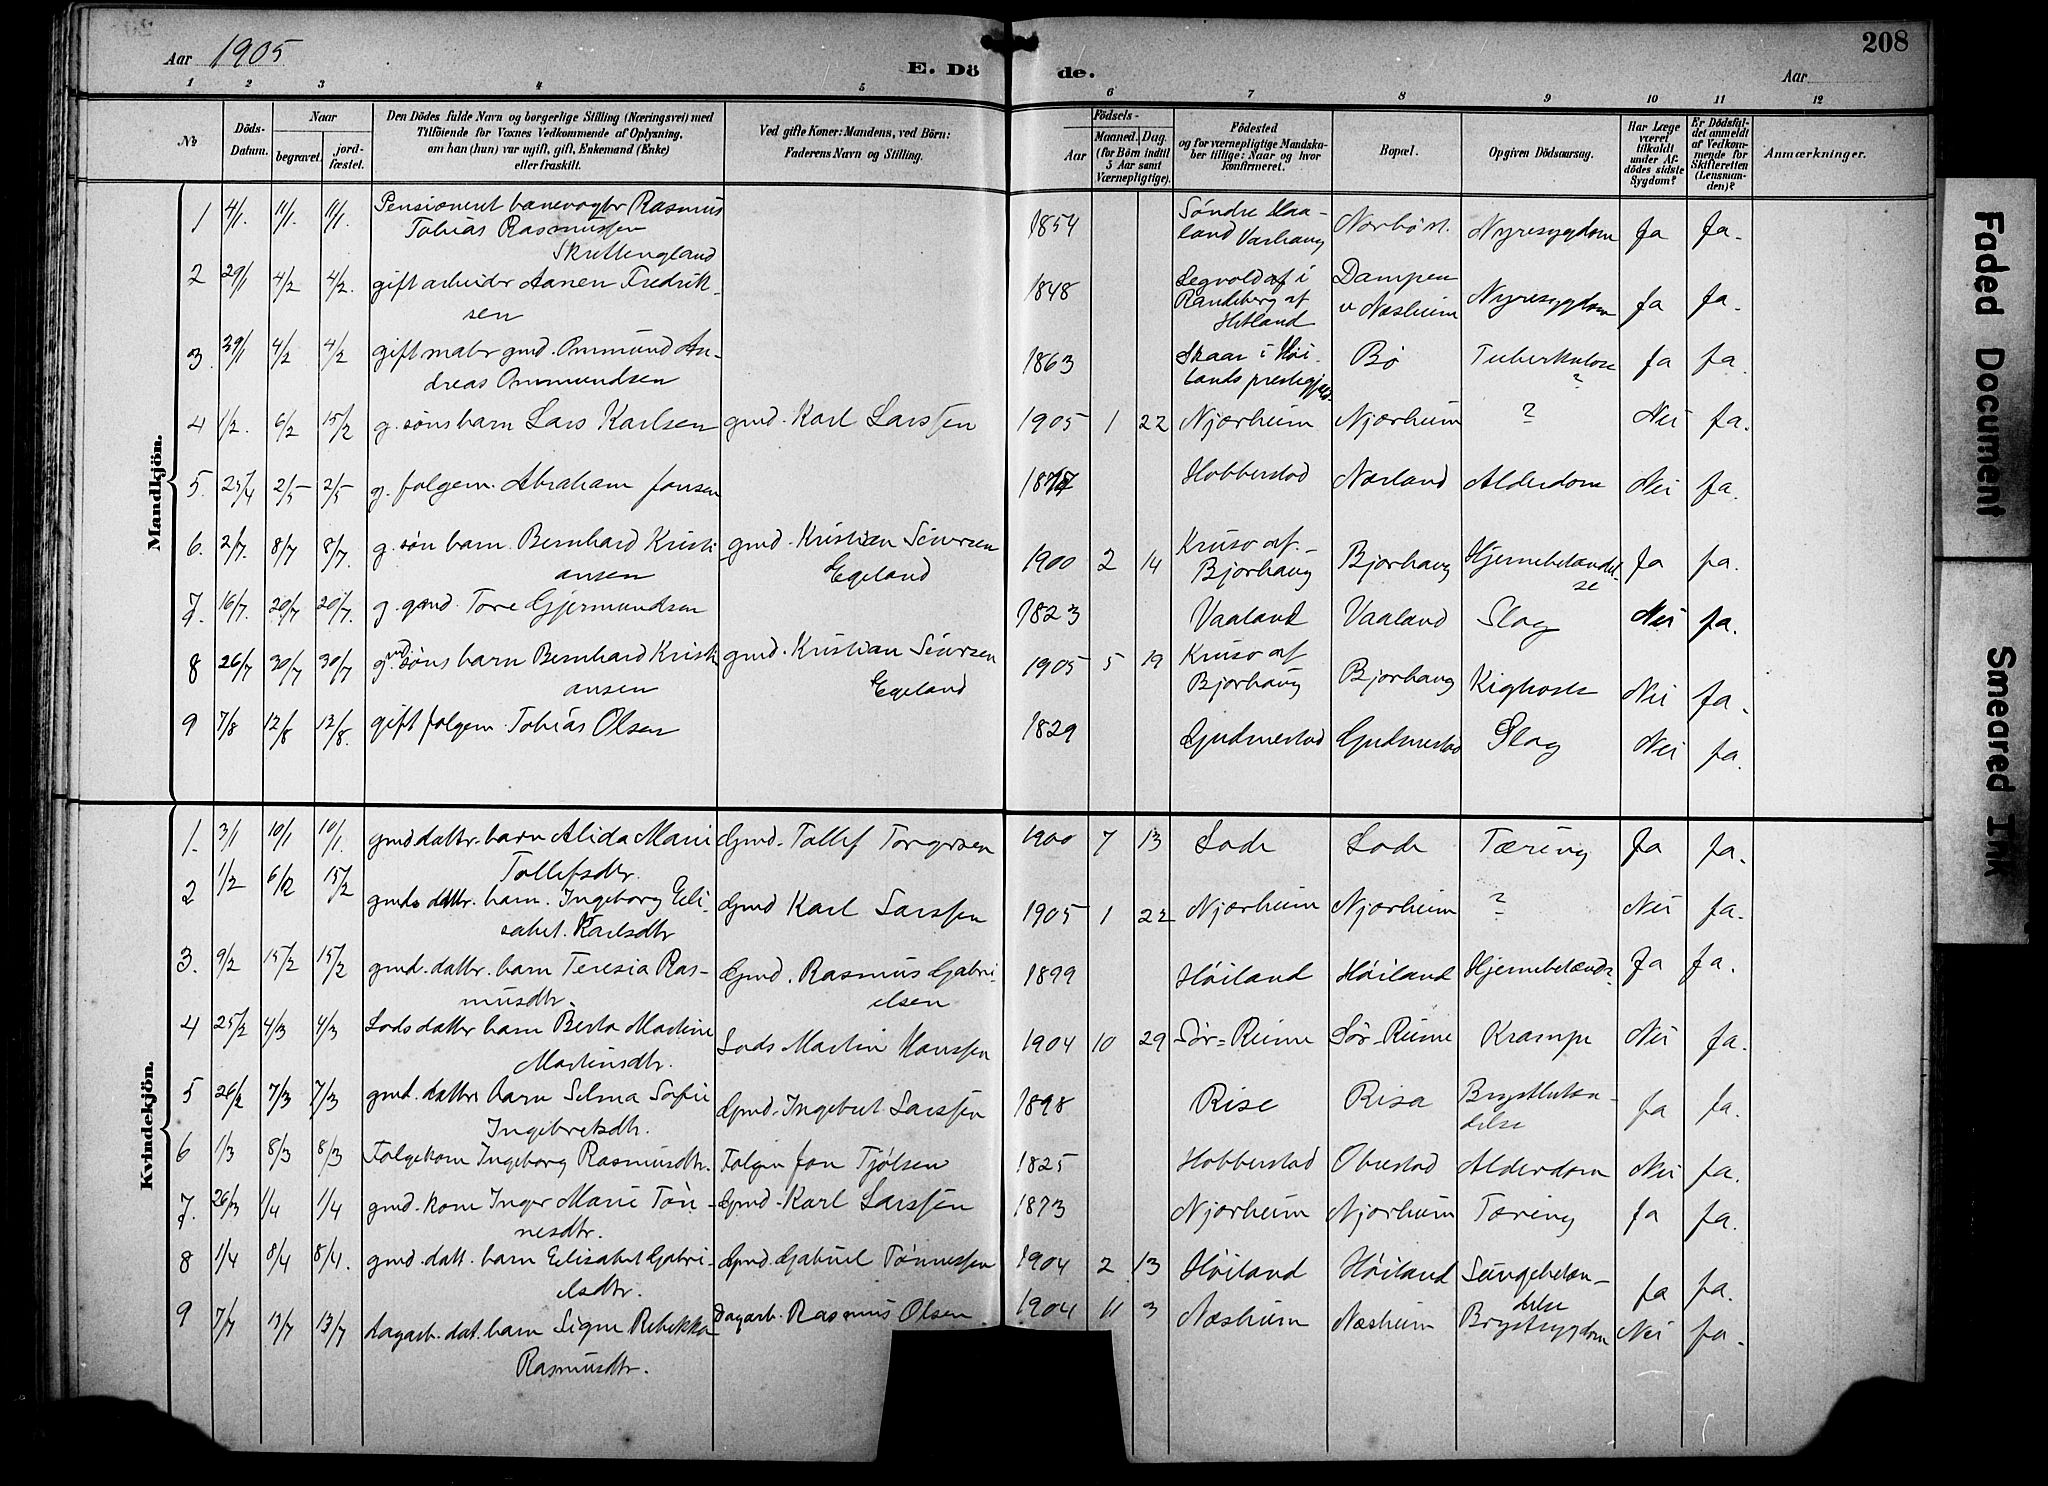 Aar 1905
E. Dö de.
Aar
208
1 2 3 4 5 6 7 8 9 10 11 12
No
Döds-Datum.
Naar
begravet.
jord-fæstet.
Den Dödes fulde Navn og borgerlige Stilling (Næringsvei) med
Tilföiende for Voxnes Vedkommende af Oplysning,
om han (hun) var ugift, gift, Enkemand (Enke)
eller fraskilt.
Ved gifte Koner: Mandens, ved Börn:
Faderens Navn og Stilling.
Födsels-
Aar
Maaned. Dag.
(for Börn indtil
5 Aar samt
Værnepligtige).
Födested
og for værnepligtige Mandska-
ber tillige: Naar og hvor
konfirmeret.
Bopæl.
Opgiven Dödsaarsag.
Har Læge
været
tilkaldt
under Af-
dödes sidste
Sygdom?
Er Dödsfal-
det anmeldt
af Vedkom-
mende for
Skifteretten
(Lensman-
den)?
Anmærkninger.
Mandkjön.
1 4/1. 11/1. 11/1. Pensioneret banevogter Rasmus 1854 Søndre Haa- Nyresygdom Ja Ja.
Tobias Rasmussen land Varhaug
Skrettengland
2 29/1 4/2 4/2. gift arbeider Aanen Fredrik- 1848 Dampen Nyresygdom Ja Ja.
sen Randeberg af v Næsheim
Hetland
3. 4/2 4/2 gift mater gmd. Ommund An- 1863 Skaar i Høi- Bø Tuberkulose Ja Ja.
dreas Ommundsen lands prestegjeld ?
4 1/2. 6/2 15/2 g. søns barn Lars Karlsen gmd. Karl Larssen 1905 1 22 Njærheim Njærheim ? Nei Ja.
5. 2/5 2/5 g. folgem. Abraham Jonsen Hobberstad Nærland Alderdom Nei Ja.
6. 2/7. 8/7 8/7. g. søn barn. Bernhard Kristi gmd. Kristian Sivertsen 1900 2 14 Bjorhaug Bjorhaug Hjernebetændel- Ja Ja.
ansen Egeland se
7. 16/7. 20/7 20/7. g. gmd. Tore Gjermundsen 1823 Vaaland Vaaland Slag Nei Ja.
8 26/7 30/7 30/7 gmd. søns barn Bernhard Kristi gmd. Kristian Sivertsen 1905 5 19 Bjorhaug Bjorhaug Kighoste Nei Ja.
ansen Egeland
9 7/8 12/8 12/8. gift folgem. Tobias Olsen 1829 Gudmestad Gudmestad Slag Nei Ja.
Kvindekjön.
1. 3/1 10/1 10/1. gmd datter. barn Alida Marie Gmd. Tollef Torgersen 1900 7 13 Lode Lode Tæring Ja Ja.
Tollefsdtr.
2 1/2 6/2 15/2 gmds datter. barn. Ingeborg Eli- Gmd Karl Larssen 1905 1 22 Njærheim Njærheim ? Nei Ja.
sabet. Karlsdtr
3. 9/2 15/2 15/2 gmd. datter. barn Teresia Ras- Gmd. Rasmus Gabri- 1899 Høiland Høiland Hjernebetænds. Ja Ja.
musdtr. elsen
4 25/2 4/3 4/3 Lods datter barn Berta Martine Lods Martin Hanssen 1904 10 29 Sør=Reime Sør-Reime Krampe Nei Ja.
Martinsdtr.
5 26/2 7/3 7/3 gmd. datter barn Selma Sofie Gmd. Ingebret Larssen 1898 Rise Risa Brystbetæn- Ja Ja.
Ingebretsdtr. delse
6 1/3 8/3 8/3 Folgekone Ingeborg Rasmusdtr. Folgem Jon Tjølsen 1825 Hobberstad Obrestad Alderdom Nei Ja.
7. 26/3 1/4 1/4 gmd. kone Inger Marie Tøn- Gmd. Karl Larssen 1873 Njærheim Njærheim Tæring Ja Ja.
nesdtr.
8 1/4 8/4 8/4. gmd. datt. barn Elisabet Gabri- Gmd. Gabriel Tønnessen 1904 2 13 Høiland Høiland Lungebetæn- Ja Ja.
elsdtr. delse
9 7/7 13/7 13/7 dagarb. dat. barn Signe Rebekka Dagarb. Rasmus Olsen 1904 11 3 Næsheim Næsheim Brystsygdom Nei Ja.
Rasmusdtr.
Faded Document
Smeared Ink